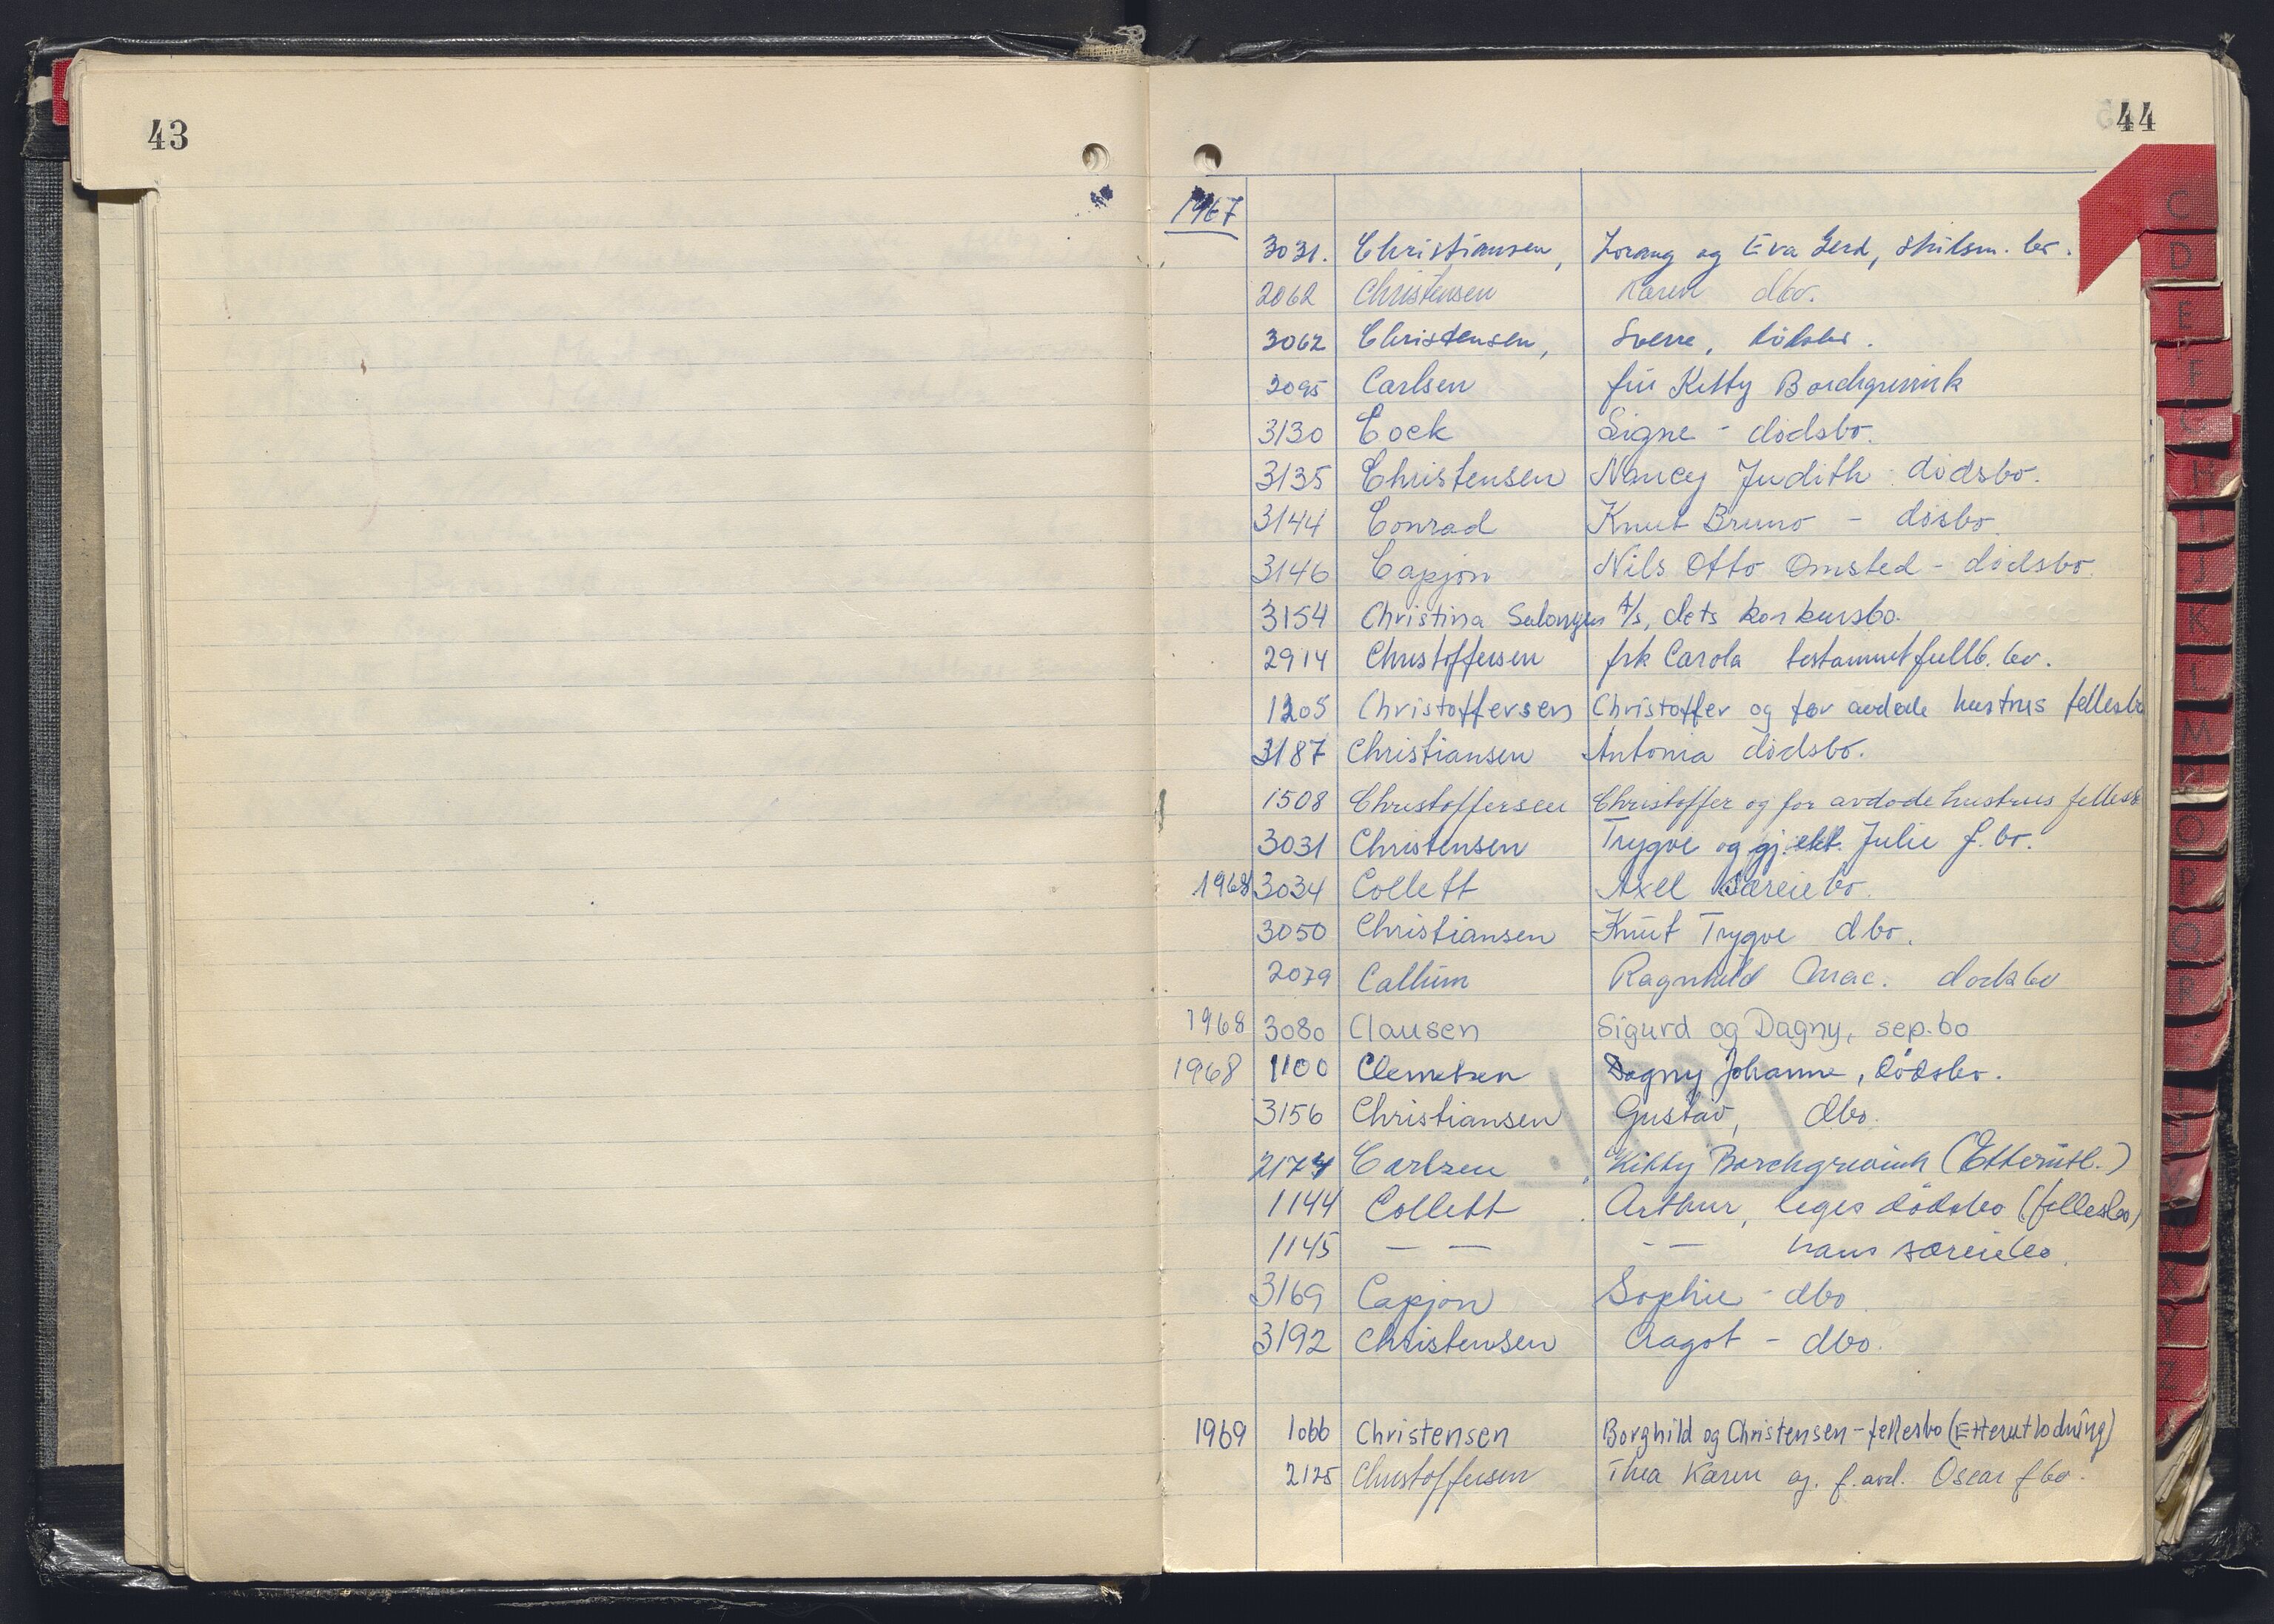 43
44
1967
3031. Christiansen, Lorang og Eva Gerd, skilsm. bo.
2062 Christensen Karen dbo.
3062 Christensen, Sverre, dödsbo.
2095 Carlsen frú Kitty Borchgrevink
3130 Cock Signe - dödsbo.
3135 Christensen Nancy Judith dödsbo.
3144 Conrad Knut Bruno - dösbo
3146 Capjon Nils Otto Omsted - dödsbo
3154 Christina Salongen A/s, dets konkursbo.
2914 Christoffersen frk Carola testamentfullb. bo.
1205 Christoffersen Christoffer og før avdøde hustrus fellesbo
3187 Christiansen Antonia dödsbo.
1508 Christoffersen Christoffer og for avdøde hustrus felles
3031 Christensen Trygve og gj. ekt. Julie f. bo.
1968 3034 Collett Axel særeiebo.
3050 Christiansen Knut Trygve dbo.
2079 Callum Ragnhild Mac. dødsbo
1968 3080 Clausen Sigurd og Dagny, sep.bo
1968 1100 Clemetsen Dagny Johanne, dödsbo.
3156 Christiansen Gustav, dbo.
2174 Carlsen "Kitty" Borchgrevink (Etterutl.)
1144 Collett Arthur, leges dödsbo (fellesbo)
1145 — — - — hans særeiebo.
3169 Capjon Sophie - dbo
3192 Christensen Aagot - dbo.
1969 1066 Christensen Borghild og Christensen - fellesbo (Etterutlodning)
2125 Christoffersen Thea Karen og. f. avd. Oscar f bo.
C
D
E
F
H
I
J
K
L
M
N
O
P
Q
R
X
Y
Z